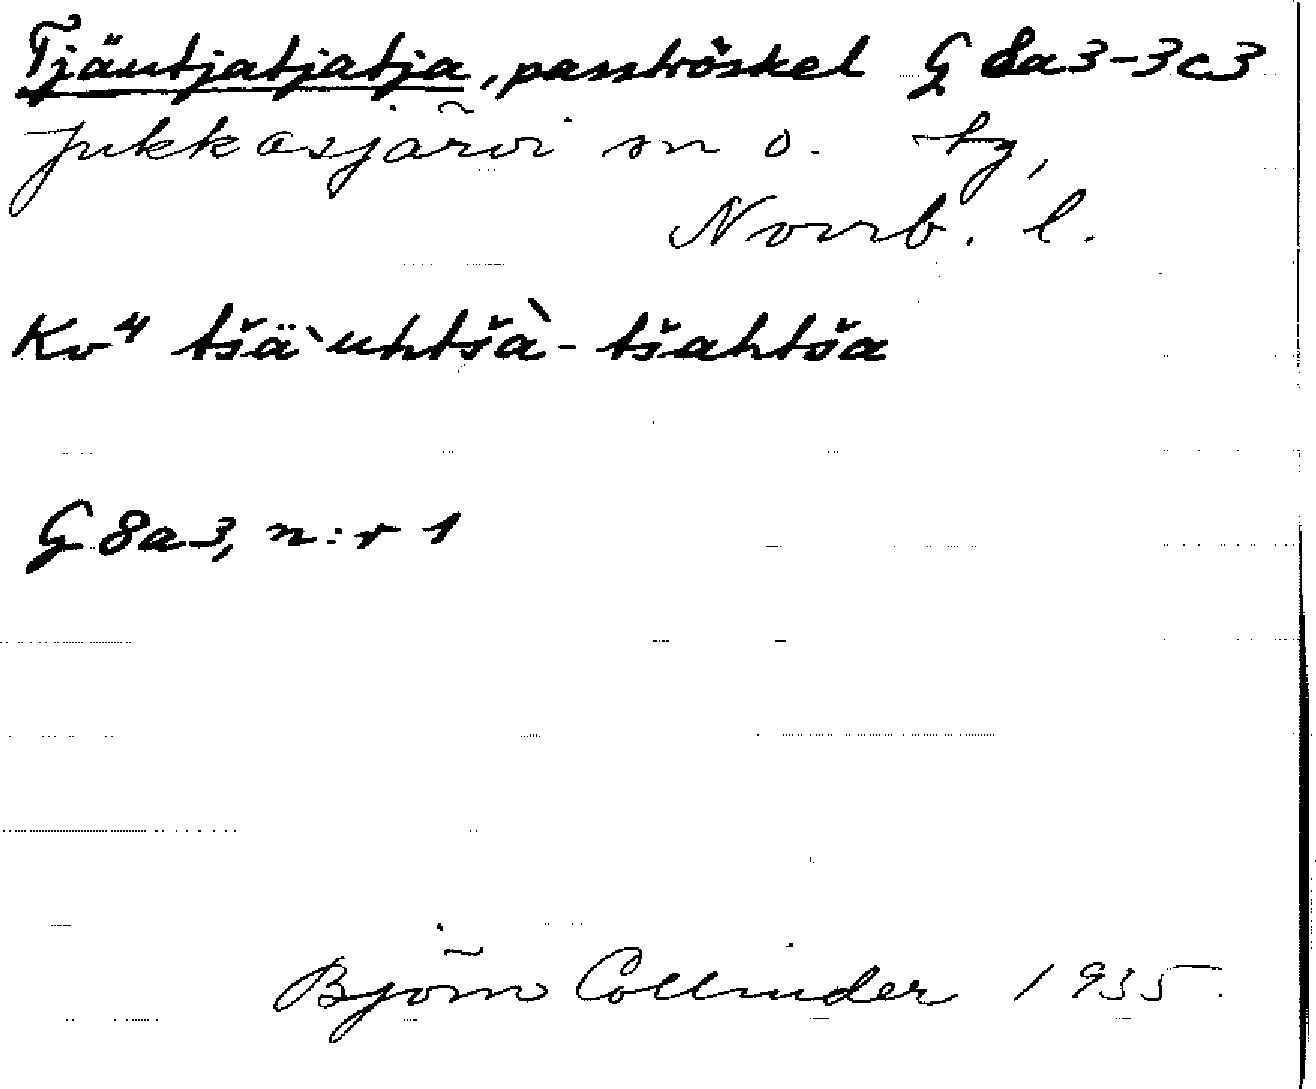 Tjäutjatjatja, pasströskel G 8a3-3c3
Jukkasjärvi sn o. tg,
Norrb. l.
Kv4 tšäˋuhtšà- tšahtša
G 8a3, n:r 1
Björn Collinder 1935